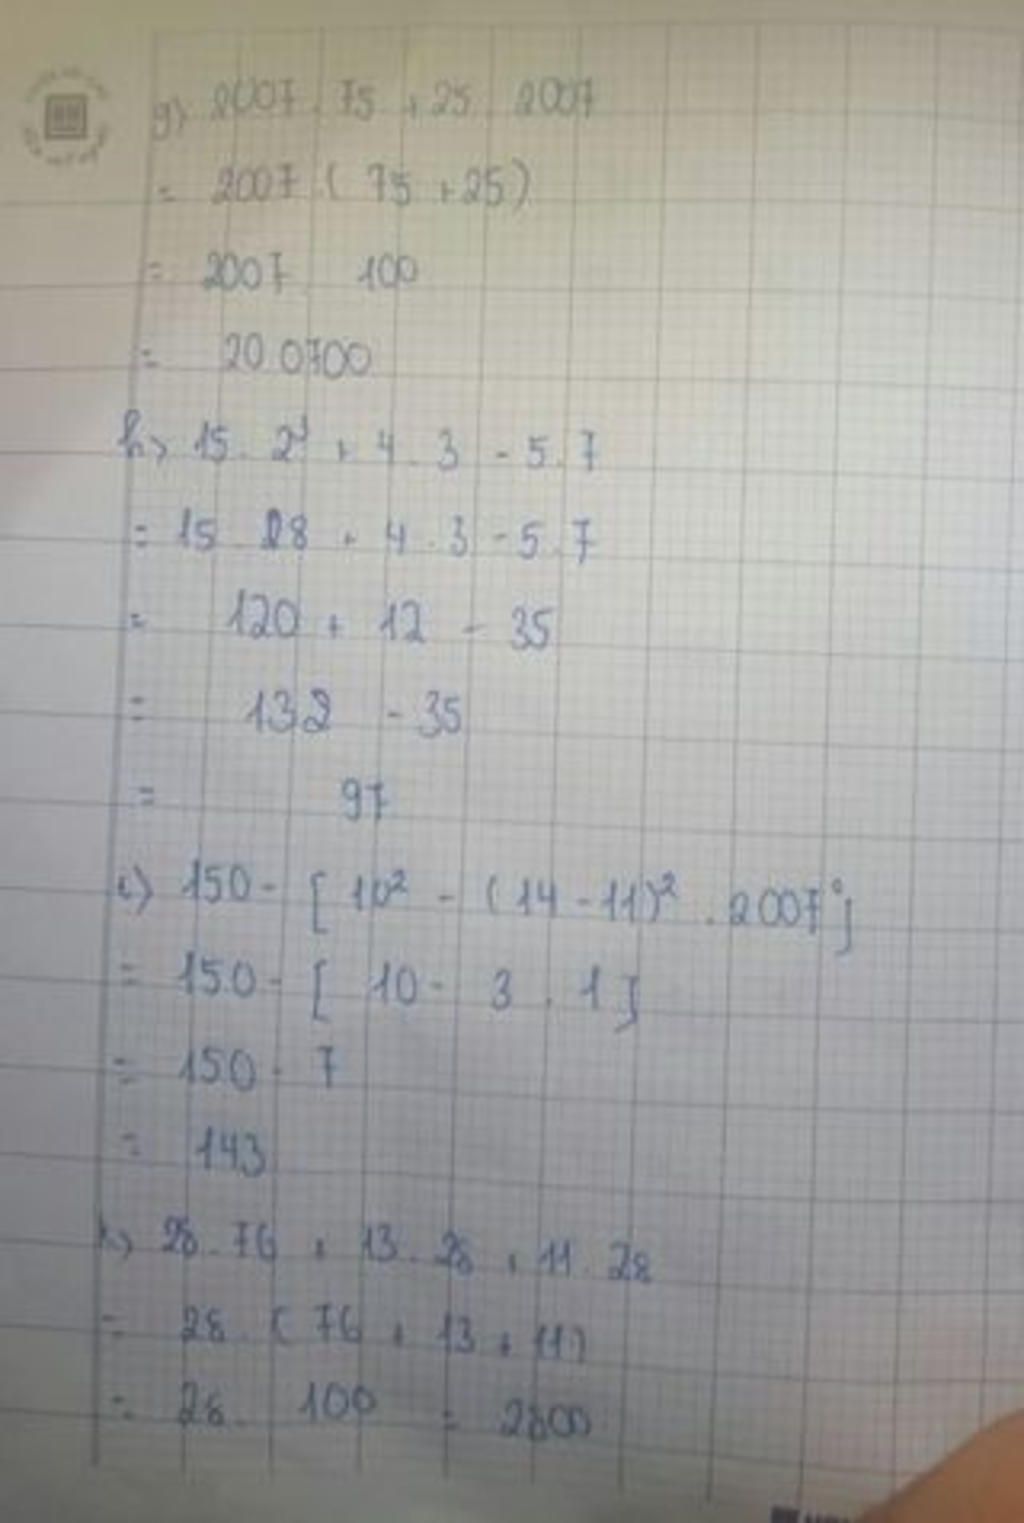 g) 2007 . 75 + 25 . 2007
= 2007 . ( 75 + 25 )
= 2007 . 100
= 20 0700
h) 15 . 2³ + 4 . 3 - 5 . 7
= 15 . 8 + 4 . 3 - 5 . 7
= 120 + 12 - 35
= 132 - 35
= 97
i) 150 - [ 10² - ( 14 - 11 )² . 2007⁰ ]
= 150 - [ 10 - 3 . 1 ]
= 150 - 7
= 143
28 . 76 + 13 . 28 + 11 . 28
= 28 . ( 76 + 13 + 11 )
= 28 . 100 = 2800